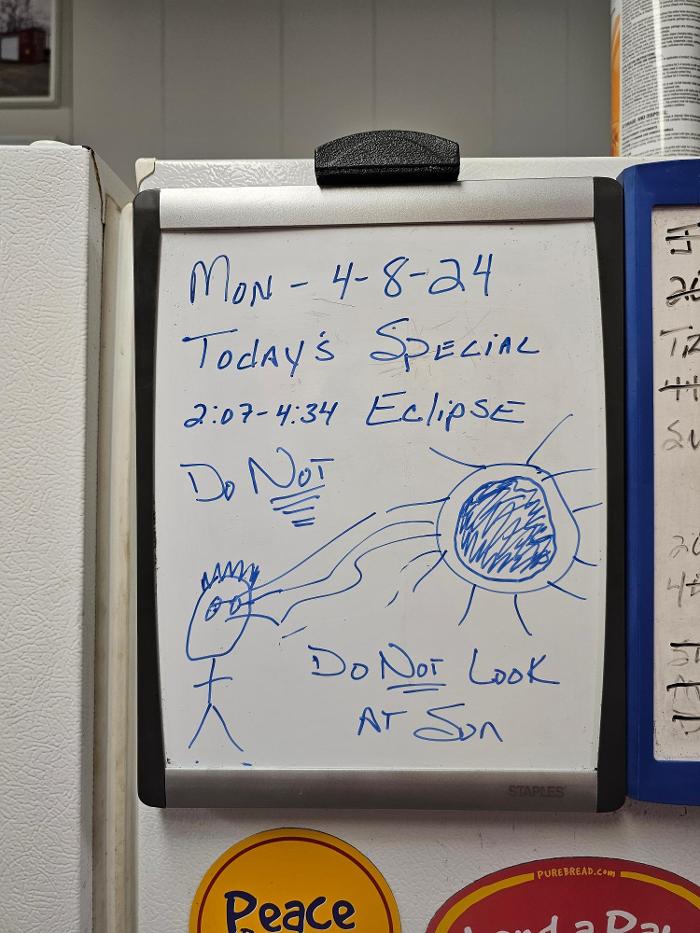 Mon - 4-8-24
Today's Special
2:07-4:34 Eclipse
Do Not
Do Not Look
At Sun
STAPLES
Peace
PUREBREAD.com